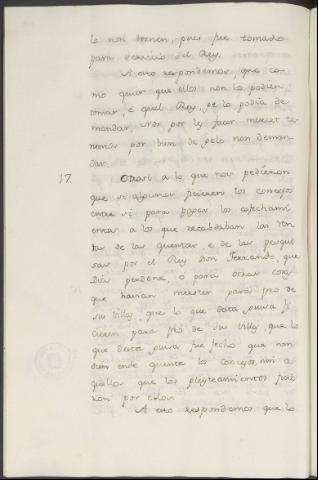 lo non tornen, pues fue tomado
para servicio del Rey.
A esto respondemos que co-
mo quier que ellos non lo podien
tomar, e quel Rey, ge lo podia de
mandar, Nos por ly facer merced te-
nemos por bien de gelo non deman
dar.
17. Otrosi a lo que nos pedieron
que si algunos ficieron los concejos
entre si para pagar los cofechami
entos a los que recabdaban las ren
tas de las quentas e de las pesqui
sas por el Rey Don Ferrando, que
Dios perdone, ó para otras cosas
que havian meester para pro de
su villa, que lo que desta guisa fi
cieron para pro de su villa que lo
que desta guisa fue fecho que non
dien ende quenta los concejos, nin a
quellos que los pleyteamientos ficie
ron por ellos.
A esto respondemos que lo